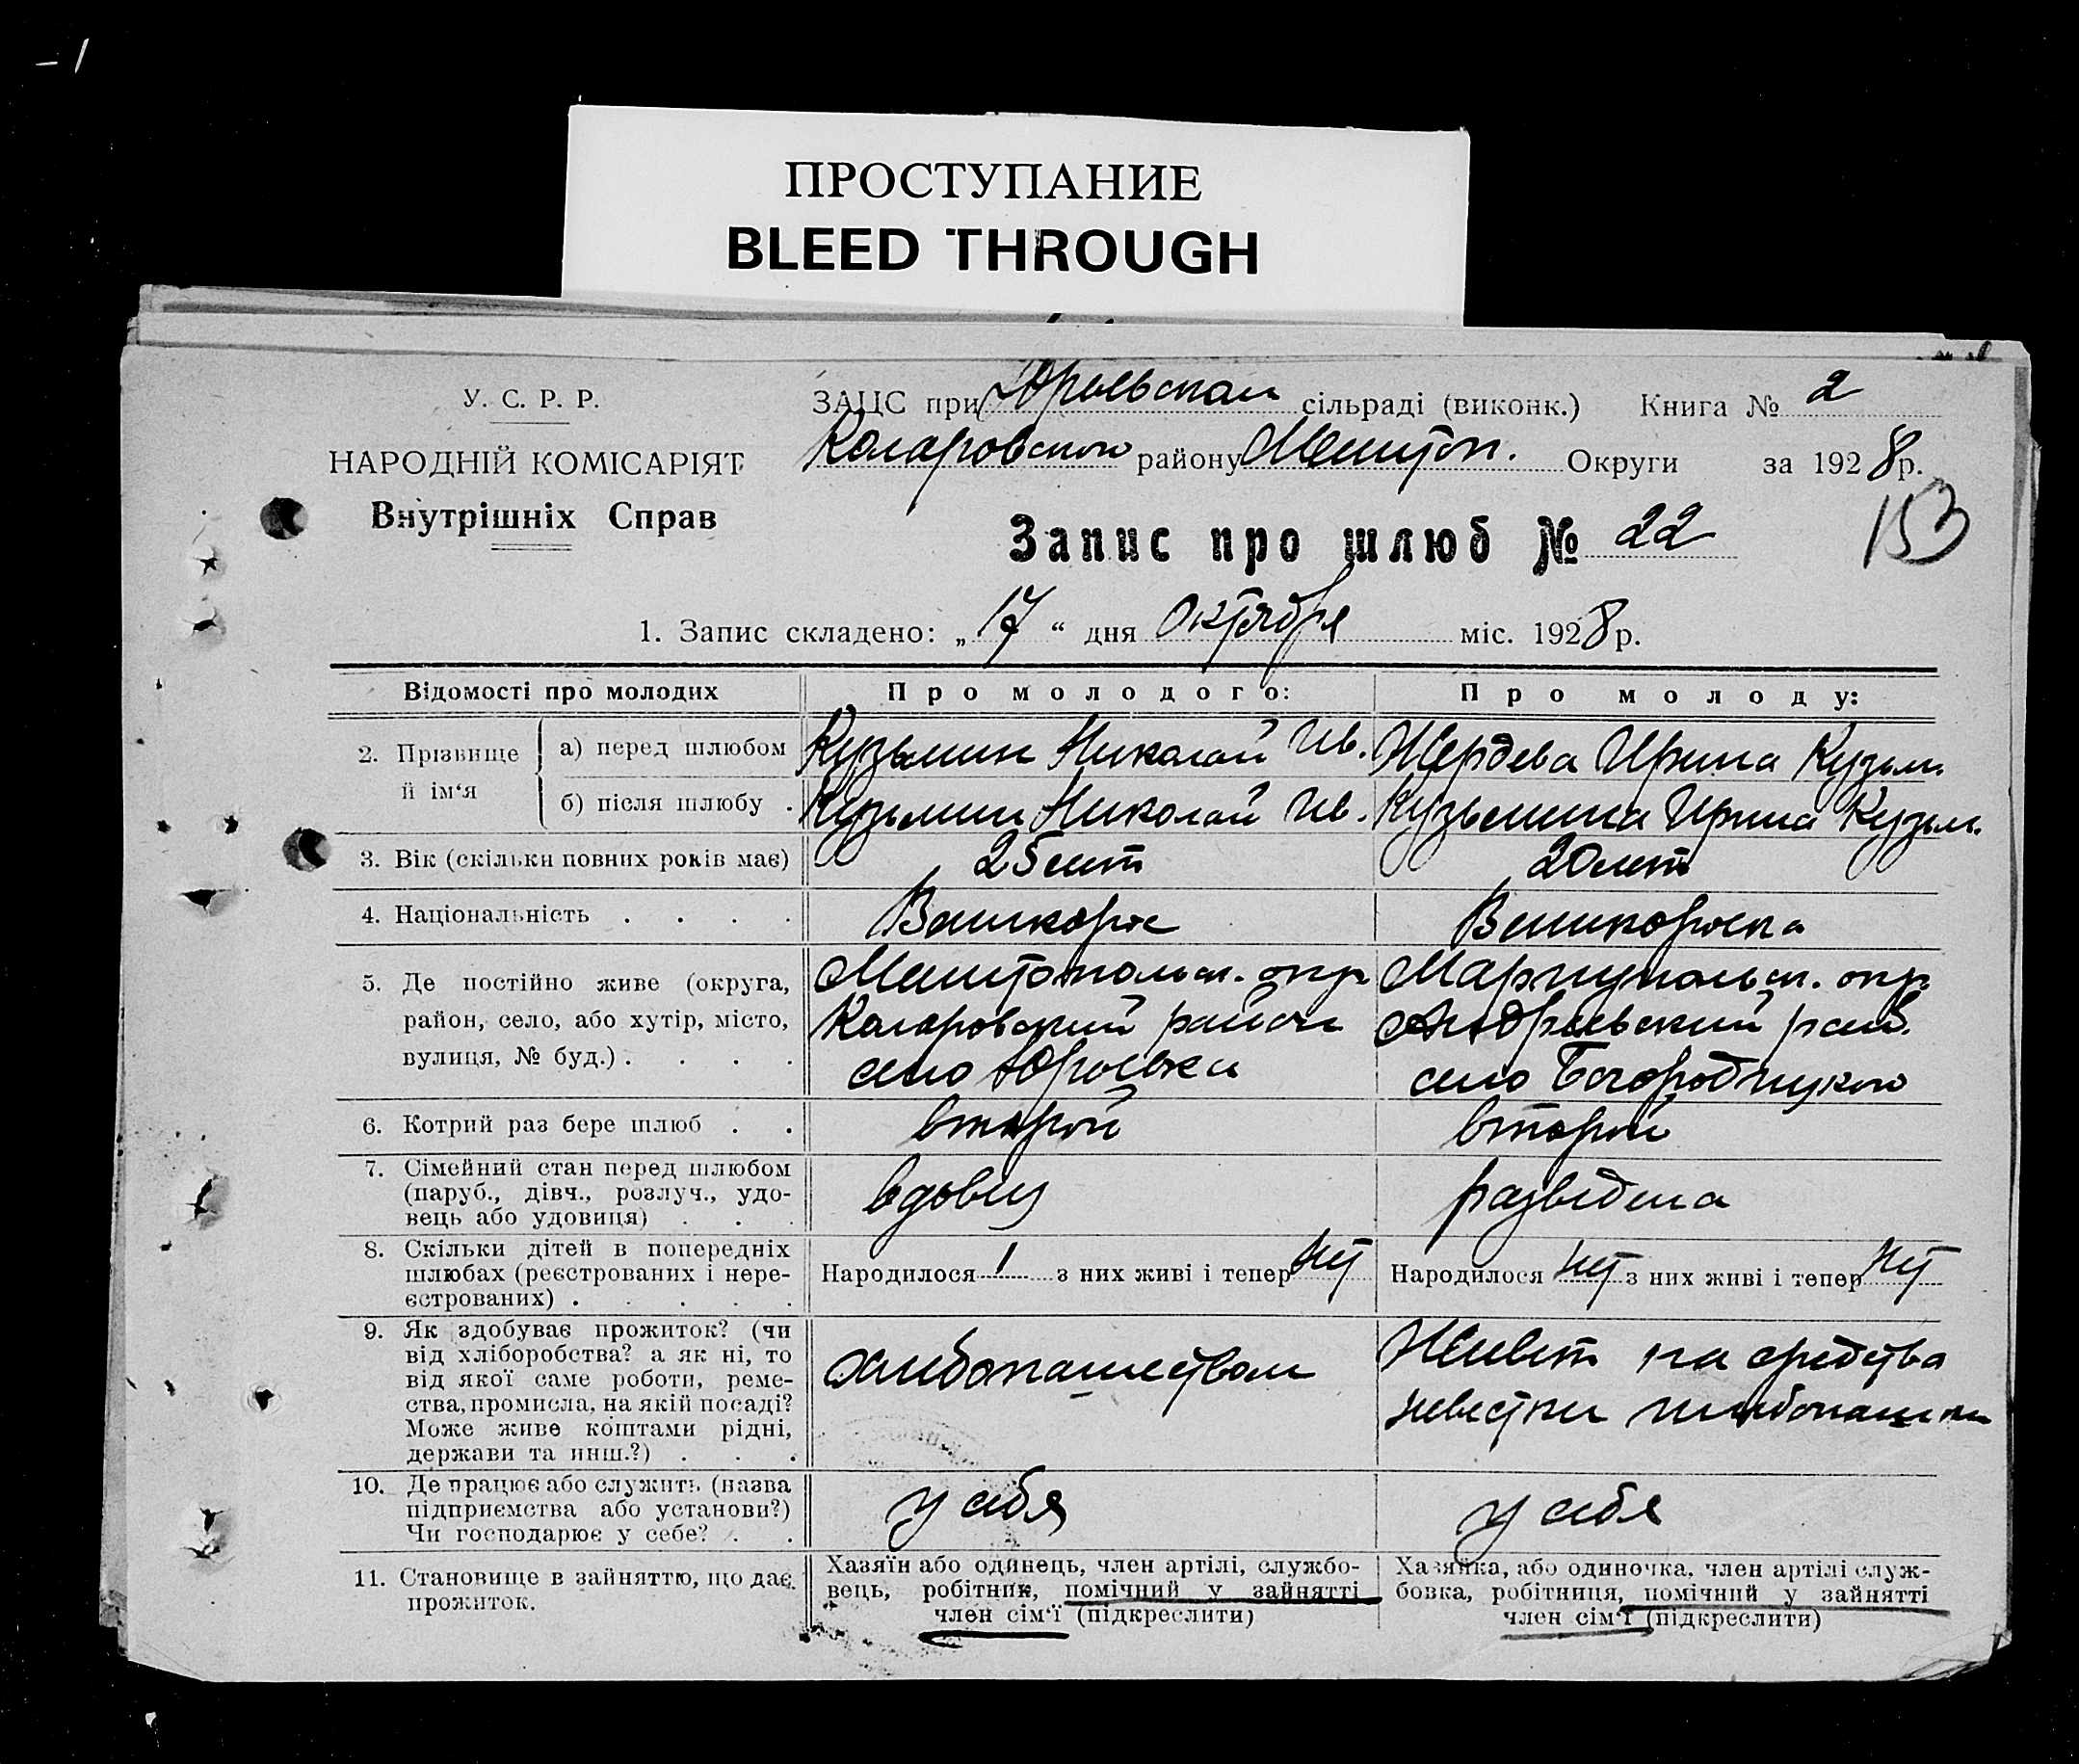 ПРОСТУПАНИЕ
BLEED THROUGH
У. С. Р. Р.
НАРОДНІЙ КОМІСАРІЯТ
Внутрішніх Справ
ЗАЦС при Юрьевском сільраді (виконк.) Книга № 2
Коларовского району Мелитоп. Округи за 1928 р.
153
Запис про шлюб № 22
1. Запис складено: „17“ дня Октября міс. 1928 р.
Відомості про молодих
Про молодого:
Про молоду:
2. Прізвище й ім‘я
а) перед шлюбом
Кузьмин Николай Ив.
Жердева Ирина Кузьм.
б) після шлюбу .
Кузьмин Николай Ив.
Кузьмина Ирина Кузьм.
3. Вік (скільки повних років має)
25 лет
20 лет
4. Національність . . . .
Великорос
Великороска
5. Де постійно живе (округа,
район, село, або хутір, місто,
вулиця, № буд.) . . . .
Мелитопольск. окр
Коларовский район
село Юрьевка
Мариупольск. окр
Андреевский рай.
село Богородицкое
6. Котрий раз бере шлюб . .
второй
второй
7. Сімейний стан перед шлюбом
(паруб., дівч., розлуч., удо-
вець або удовиця) . . .
вдовец
разведена
8. Скільки дітей в попередніх
шлюбах (реєстрованих і нере-
єстрованих) . . . . .
Народилося 1 з них живі і тепер нет
Народилося нет з них живі і тепер нет
9. Як здобуває прожиток? (чи
від хліборобства? а як ні, то
від якої саме роботи, реме-
ства, промисла, на якій посаді?
Може живе коштами рідні,
держави та инш.?) . . .
хлебопашеством
Живет на средства
невестки
10. Де працює або служить (назва
підприємства або установи?)
Чи господарює у себе? . .
у себя
у себя
11. Становище в зайняттю, що дає
прожиток.
Хазяїн або одинець, член артілі, службо-
вець, робітник, помічний у зайнятті
член сім‘ї (підкреслити)
Хазяйка, або одиночка, член артілі служ-
бовка, робітниця, помічний у зайнятті
член сім‘ї (підкреслити)